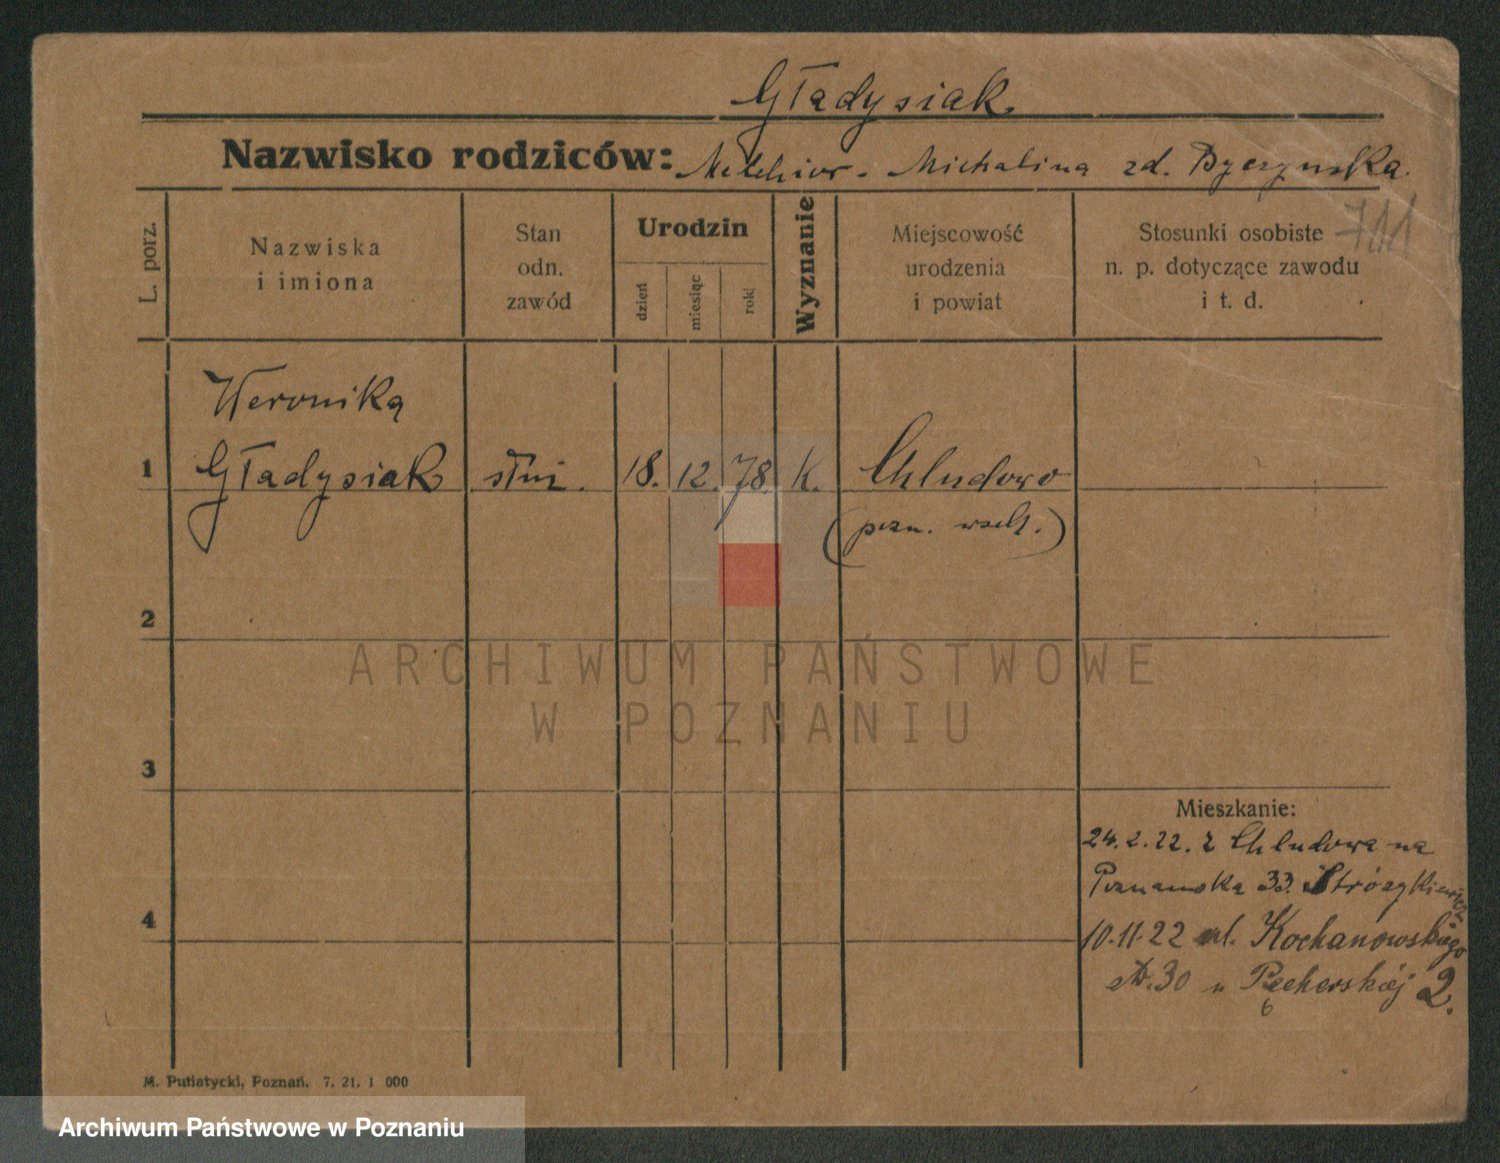 Gładysiak
Nazwisko rodziców: Melchior - Michalina zd. Dyczynska
711
L. porz.
Nazwiska
i imiona
Stan
odn.
zawód
Urodzin
dzień
miesiąc
rok
Wyznanie
Miejscowość
urodzenia
i powiat
Stosunki osobiste
n. p. dotyczące zawodu
i t. d.
Weronika
1 Gładysiak służ. 18. 12. 78. k. Chludowo
(pozn. wsch.)
2
3
4
Mieszkanie:
24.2.22. z Chludowa na
Poznanska 33. Strózykiewicz
10.11.22 ul. Kochanowskiego
20 u Pecherskiej 2.
M. Putiatycki, Poznań. 7. 21. 1 000
ARCHIWUM PAŃSTWOWE
W POZNANIU
Archiwum Państwowe w Poznaniu